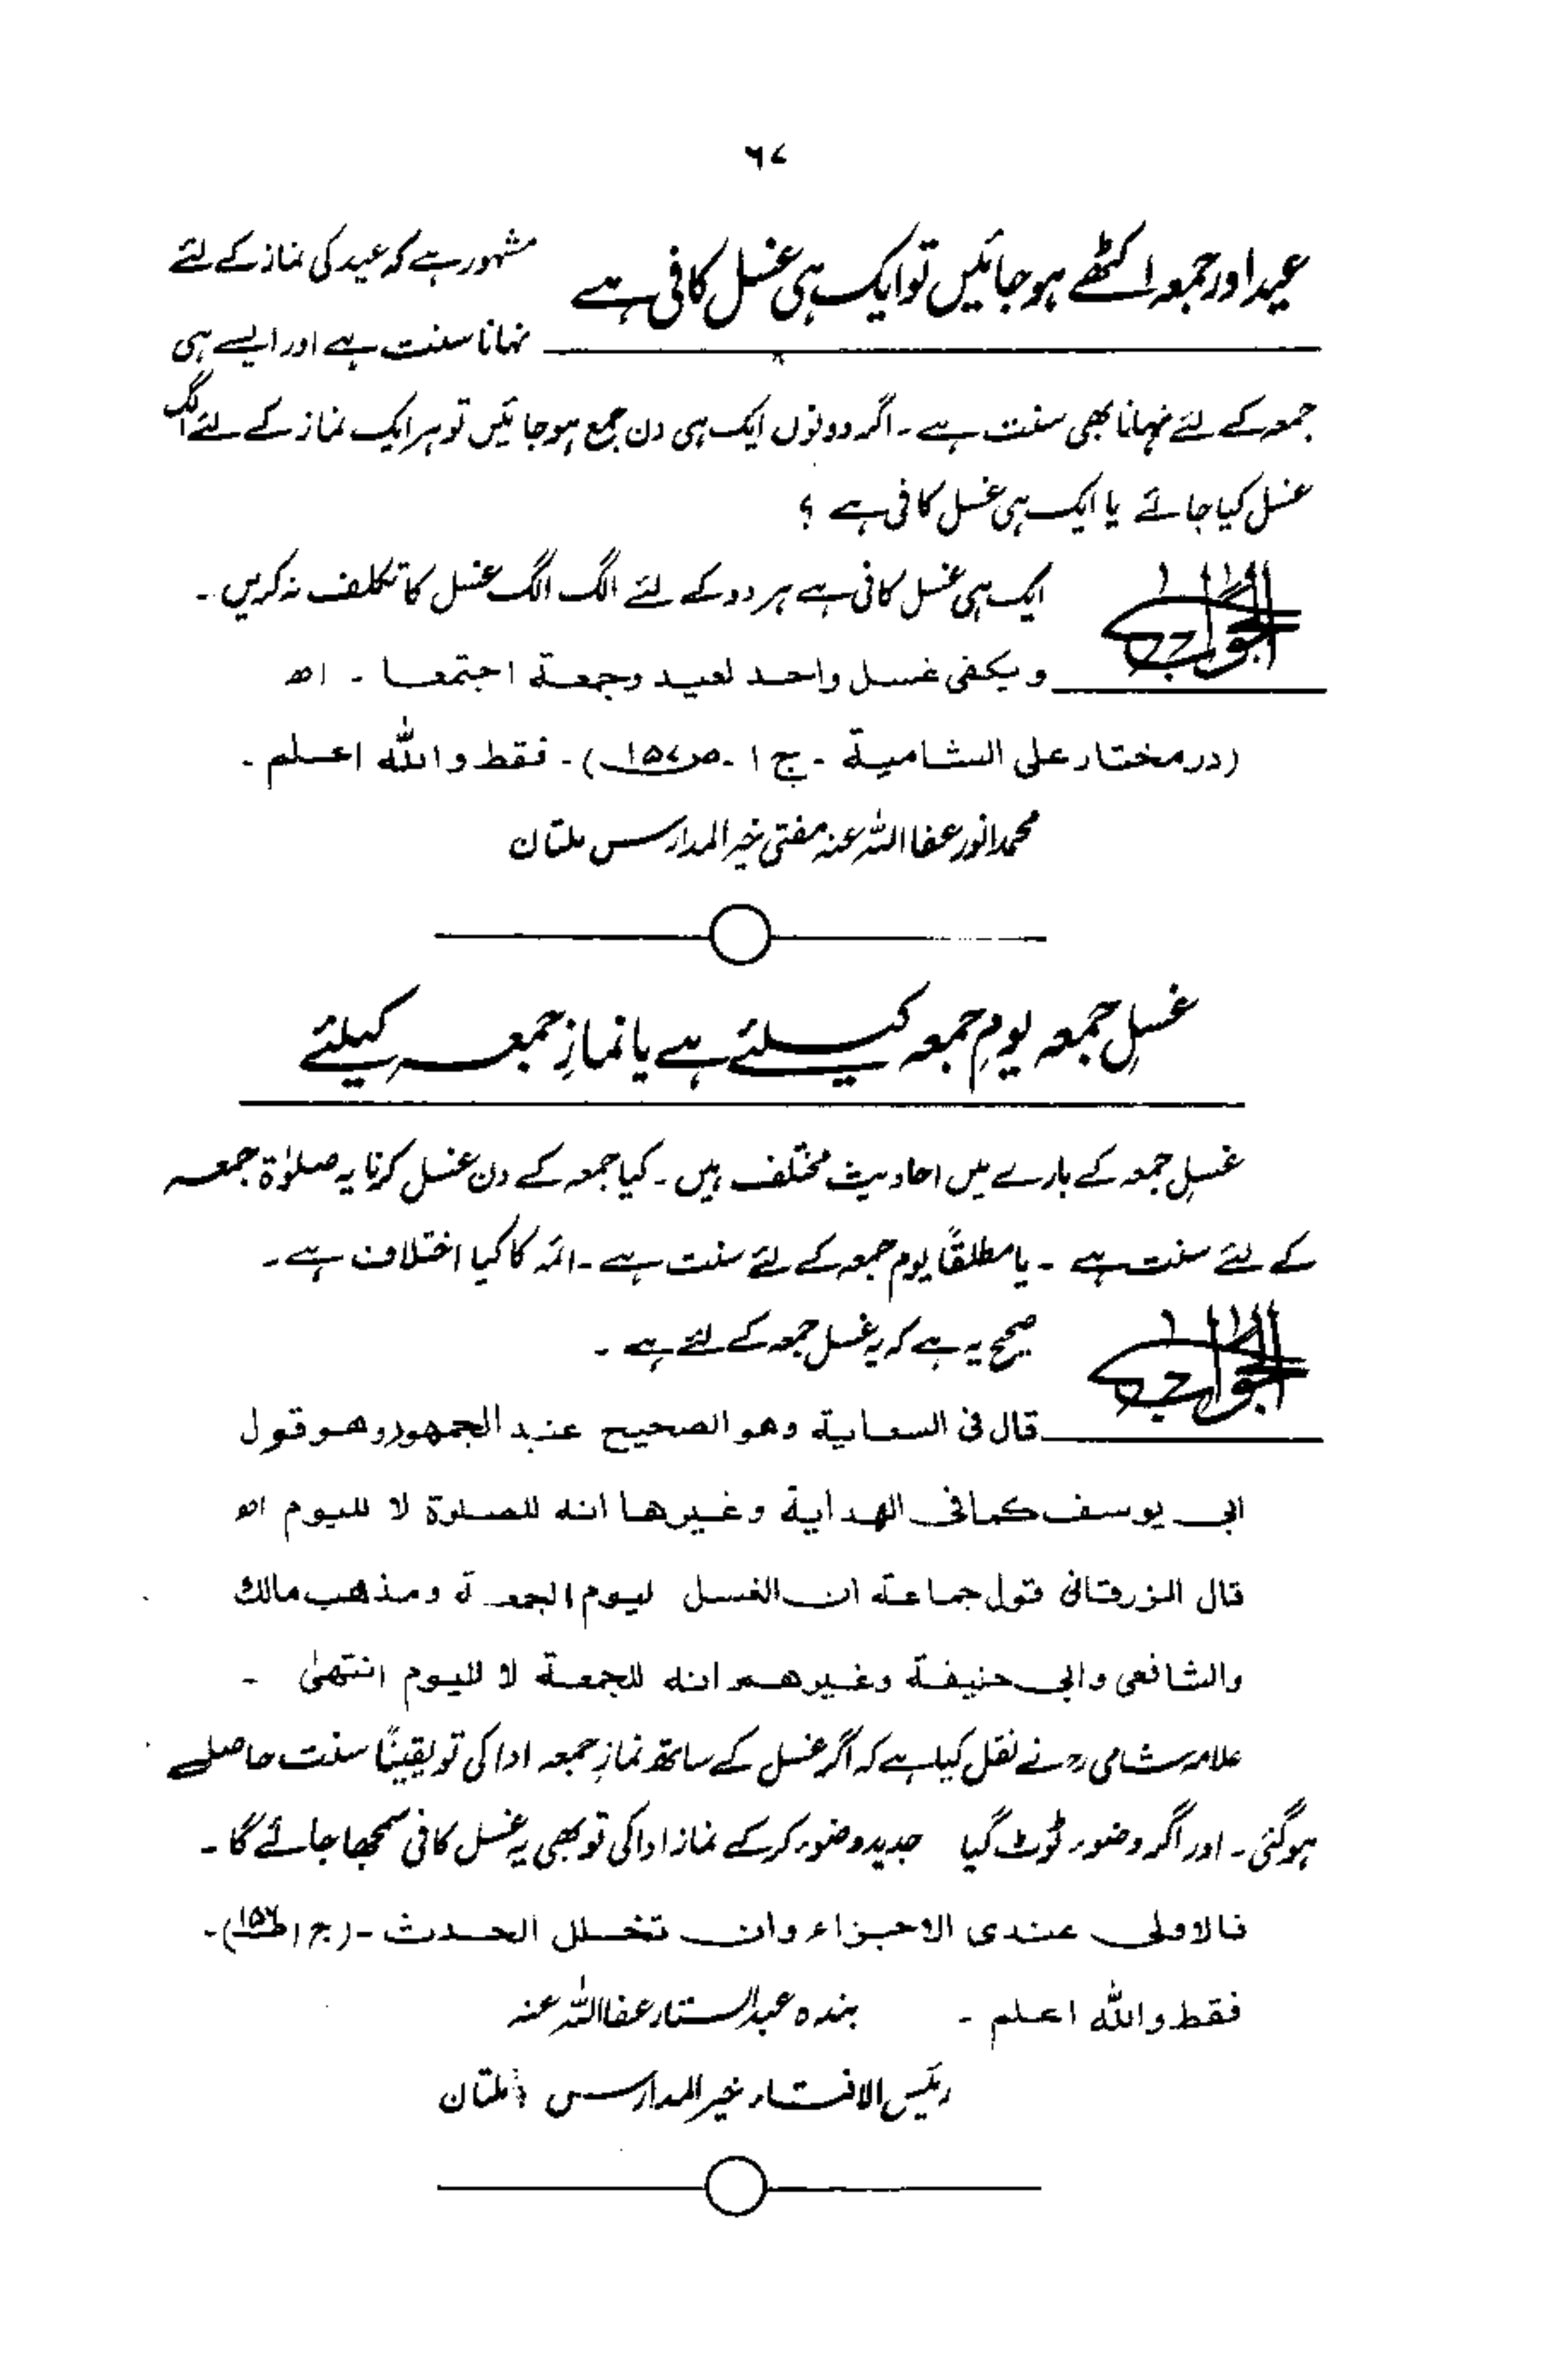 ۶۷
عید اور جمعہ اکٹھے ہو جائیں تو ایک ہی غسل کافی ہے
مشہور ہے کہ عید کی نماز کے لئے
نہانا سنت ہے اور ایسے ہی
جمعہ کے لئے نہانا بھی سنت ہے ۔ اگر دونوں ایک ہی دن جمع ہو جائیں تو ہر ایک نماز کے لئے الگ
غسل کیا جائے یا ایک ہی غسل کافی ہے ؟
الجواب
ایک ہی غسل کافی ہے ہر دو کے لئے الگ الگ غسل کا تکلف نہ کریں ۔
ویکفی غسل واحد لعید وجمعة اجتمعا ۔ اھ
(درمختار علی الشامیة ۔ ج ۱ ۔ ص ۱۵۷) ۔ فقط واللہ اعلم ۔
محمد انور عفا اللہ عنہ مفتی خیر المدارس ملتان
غسلِ جمعہ یومِ جمعہ کیلئے ہے یا نمازِ جمعہ کیلئے
غسلِ جمعہ کے بارے میں احادیث مختلف ہیں ۔ کیا جمعہ کے دن غسل کرنا یہ صلوٰۃ جمعہ
کے لئے سنت ہے ۔ یا مطلقاً یوم جمعہ کے لئے سنت ہے ۔ ائمہ کا کیا اختلاف ہے ۔
الجواب
صحیح یہ ہے کہ یہ غسل جمعہ کے لئے ہے ۔
قال فی السعایة وهو الصحیح عند الجمهور وهو قول
ابی یوسف کما فی الهدایة وغیرها انه للصلوة لا للیوم اھ
قال الزرقانی قول جماعة ان الغسل لیوم الجمعة ومذهب مالك
والشافعی وابی حنیفة وغیرهم انه للجمعة لا للیوم انتهیٰ ۔
علامہ شامی رحؒ نے نقل کیا ہے کہ اگر غسل کے ساتھ نمازِ جمعہ ادا کی تو یقیناً سنت حاصل
ہو گئی ۔ اور اگر وضوء ٹوٹ گیا جدید وضوء کر کے نماز ادا کی تو بھی یہ غسل کافی سمجھا جائے گا ۔
فالاولی عندی الاجزاء وان تخلل الحدث ۔ (ج ۱ ص ۱۵۶) ۔
فقط واللہ اعلم ۔ بندہ عبدالستار عفا اللہ عنہ
رئیس الافتاء خیر المدارس ملتان